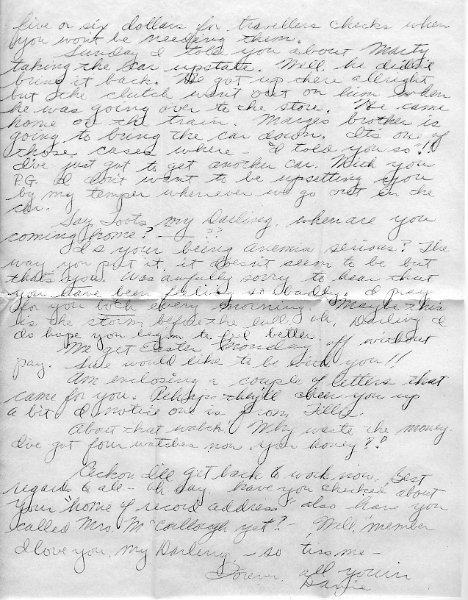 five or six dollars for travellers checks when
you wont be needing them.
Sunday I told you about Marty
taking the car upstate. Well, he didn't
bring it back. He got up there allright
but the clutch went out on him when
he was going over to the store. He came
home on the train. Marge's brother is
going to bring the car down. Its one of
those cases where - "I told you so"!!
I've just got to get another car. With you
P.G. I don't want to be upsetting you
by my temper whenever we go out in the
car.
Say Toots, my Darling, when are you
coming home???
Is your being anemia serious? The
way you put it, it doesn't seem to be but
thats you. Was awfully sorry to hear that
you have been feeling so badly. I pray
for you both every morning. Maybe this
is the storm before the lull. Oh, Darling I
do hope you begin to feel better.
We get Easter Monday off without
pay. Sure would like to be with you!!
Am enclosing a couple of letters that
came for you. Perhaps they'll cheer you up
a bit. I notice one is from
About that watch! Why waste the money.
I've got four watches now, you honey??
Reckon I'll get back to work now. Best
regards to all - Oh say, have you checked about
your "home of record address" also have you
called Mrs. McCollough yet? Well, member
I love you, my Darling - so tiss me -
Forever all yours